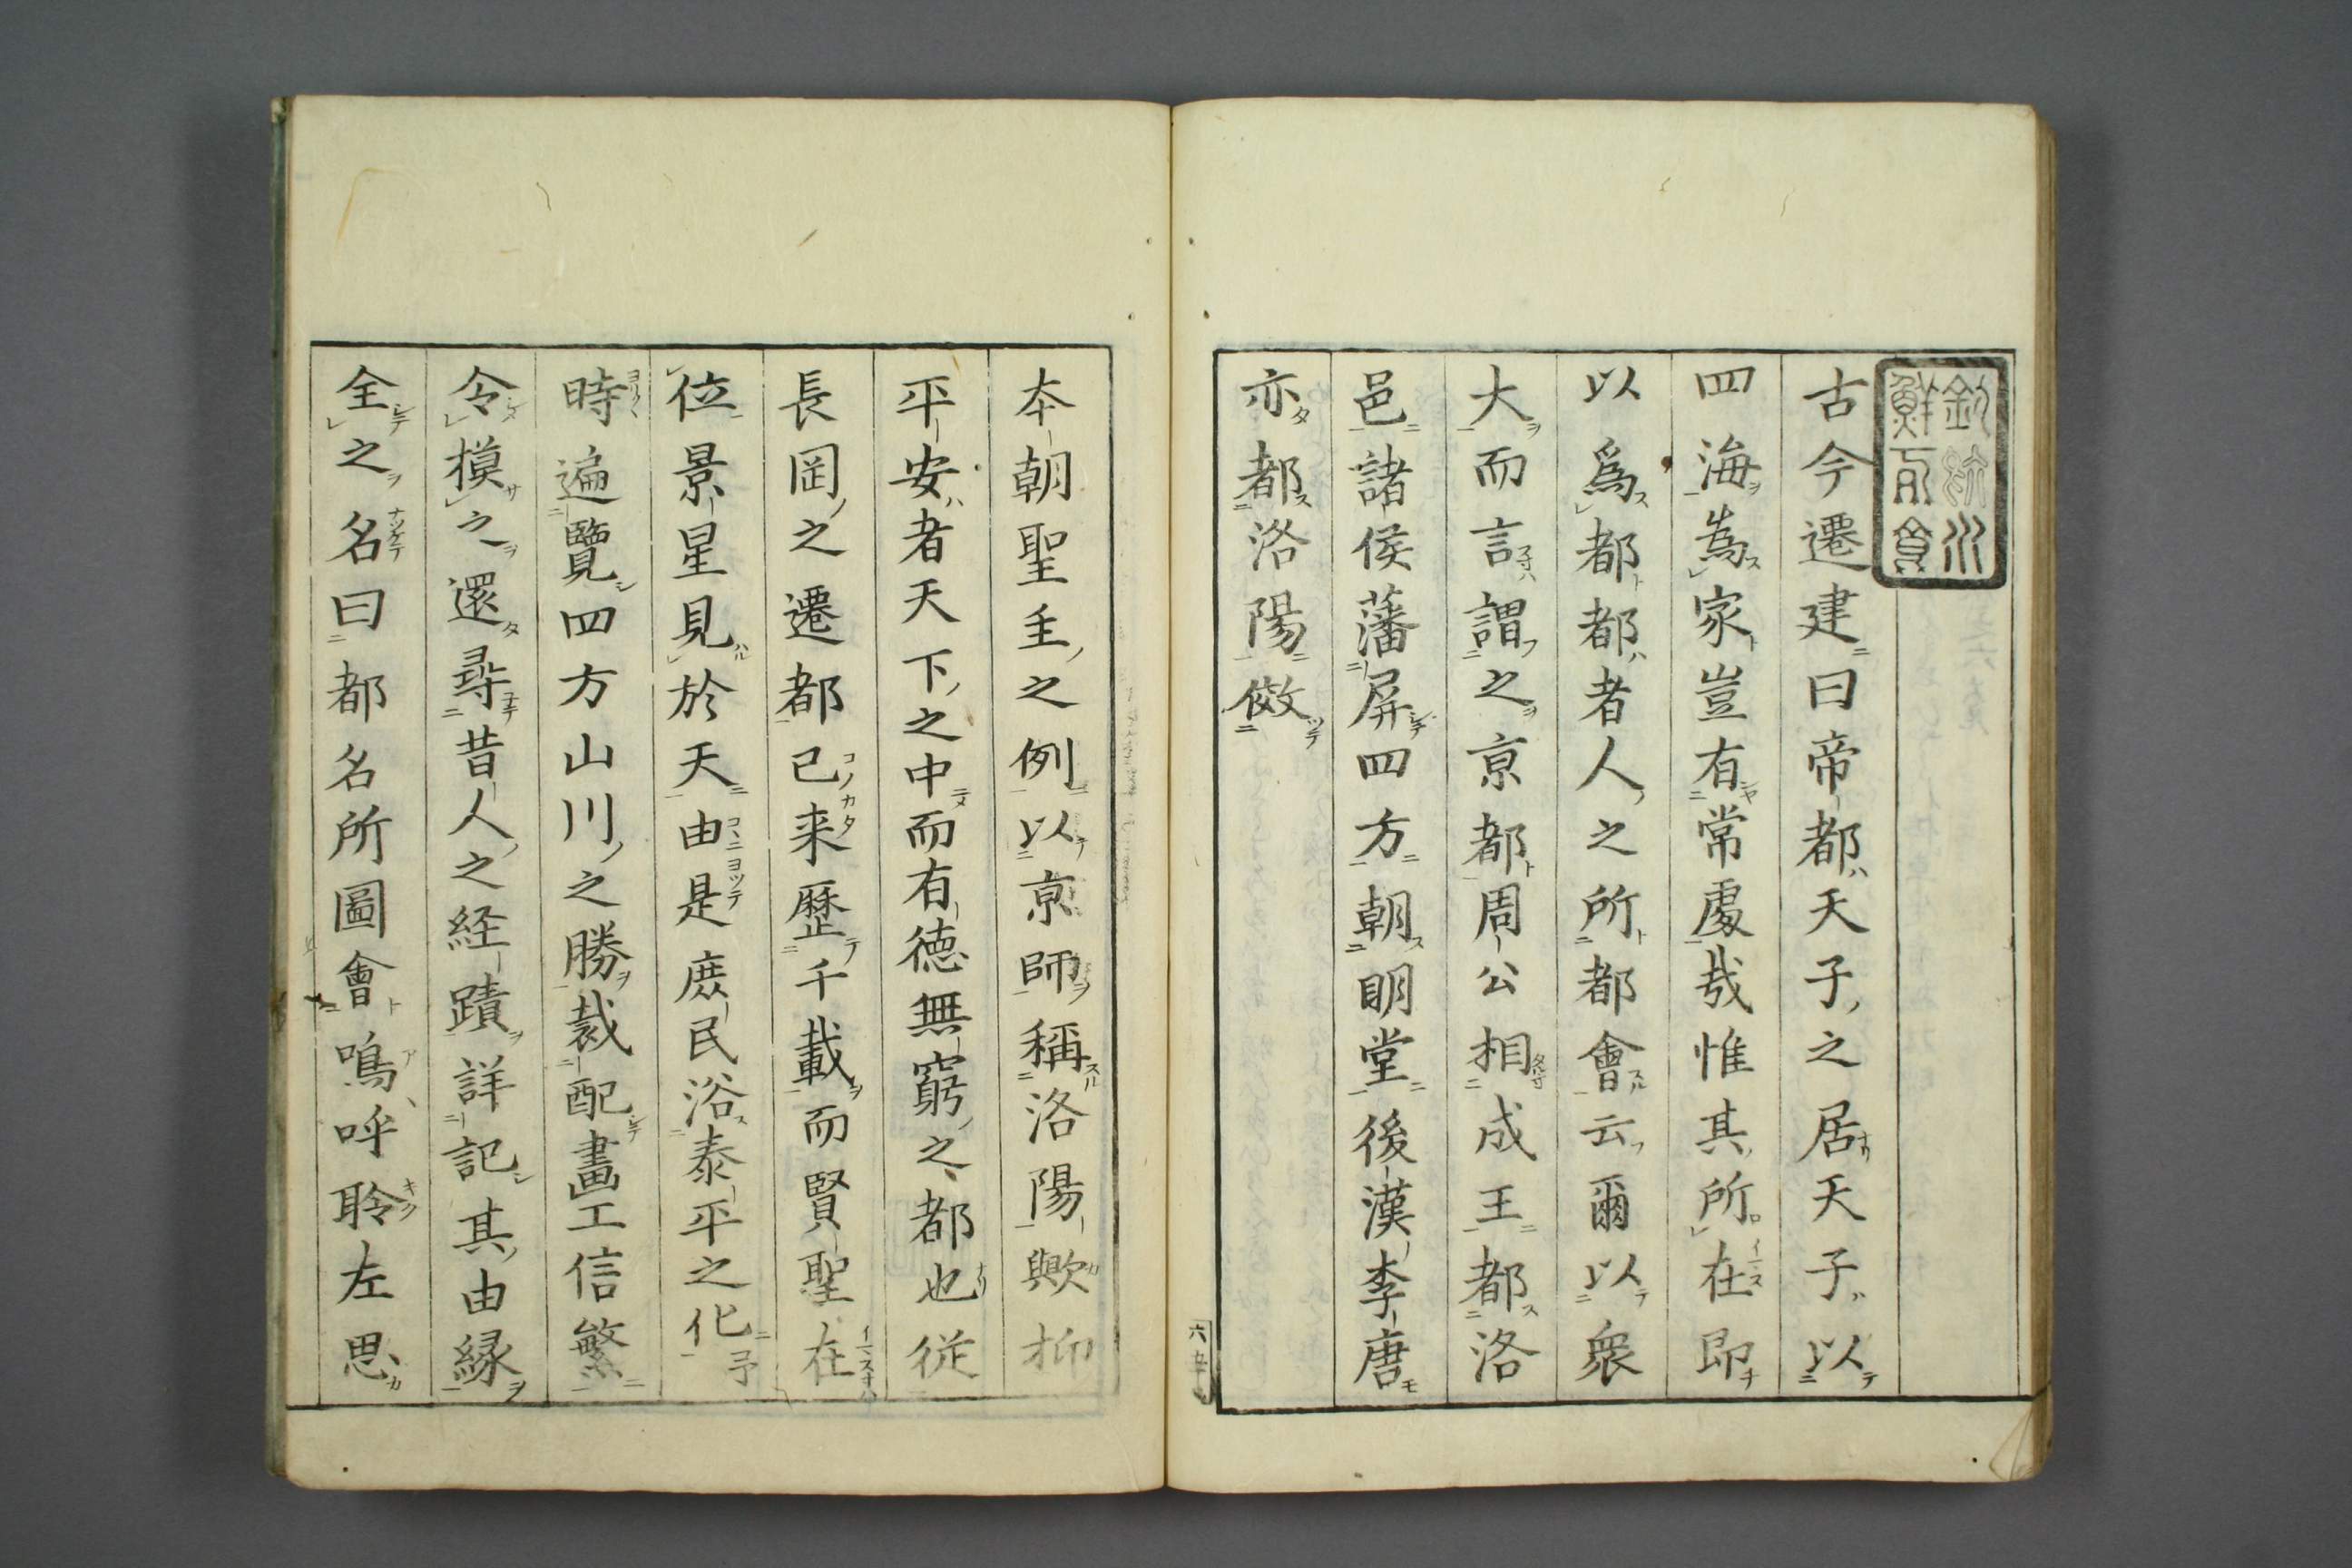 古今遷建曰帝都天子之居天子以
四海為家豈有常處哉惟其所在即
以爲都都者人之所都會云爾以衆
大而言謂之亰都周公相成王都洛
邑諸侯藩屏四方朝明堂後漢李唐
亦都洛陽倣
本朝聖主之例以亰師稱洛陽歟抑
平安者天下之中而有德無窮之都也従
長岡之遷都已来歷千載而賢聖在
位景星見於天由是庶民浴泰平之化予
時遍覽四方山川之勝裁配畫工信繁
令模之還尋昔人之経蹟詳記其由縁
全之名曰都名所圖會嗚呼聆左思